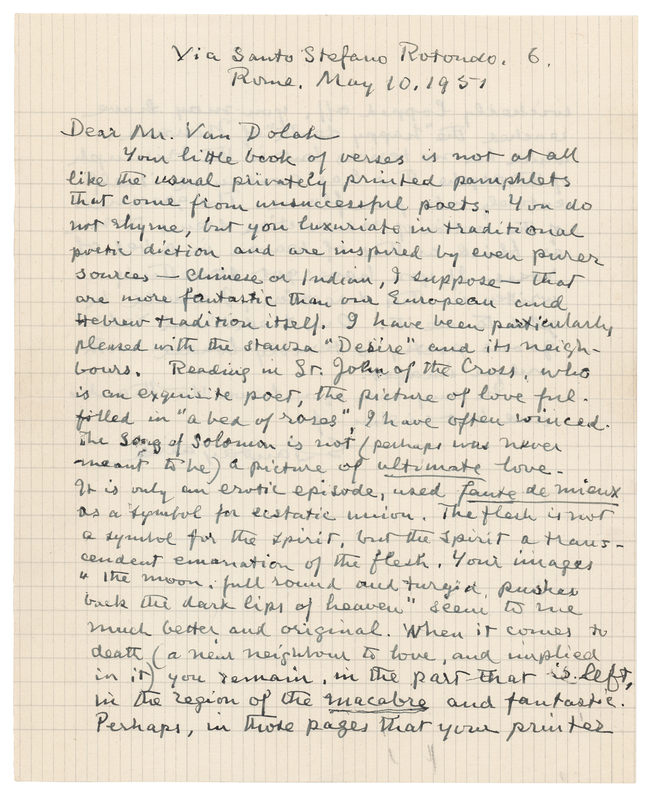 Via Santo Stefano Rotondo. 6.
Rome. May 10. 1951
Dear Mr. Van Dolah
Your little book of verses is not at all
like the usual privately printed pamphlets
that come from unsuccessful poets. You do
not rhyme, but you luxuriate in traditional
poetic diction and are inspired by even purer
sources — Chinese or Indian, I suppose — that
are more fantastic than our European and
Hebrew tradition itself. I have been particularly
pleased with the stanza "Desire" and its neigh-
bours. Reading in St. John of the Cross, who
is an exquisite poet, the picture of love ful-
filled in "a bed of roses", I have often winced.
The Song of Solomon is not (perhaps was never
meant to be) a picture of ultimate love.
It is only an erotic episode, used faute de mieux
as a symbol for ecstatic union. The flesh is not
a symbol for the spirit, but the spirit a trans-
cendent emanation of the flesh. Your images
"the moon, full round and turgid, pushes
back the dark lips of heaven" seem to me
much better and original. When it comes to
death (a near neighbour to love, and implied
in it) you remain, in the part that is left,
in the region of the macabre and fantastic.
Perhaps, in those pages that your printer